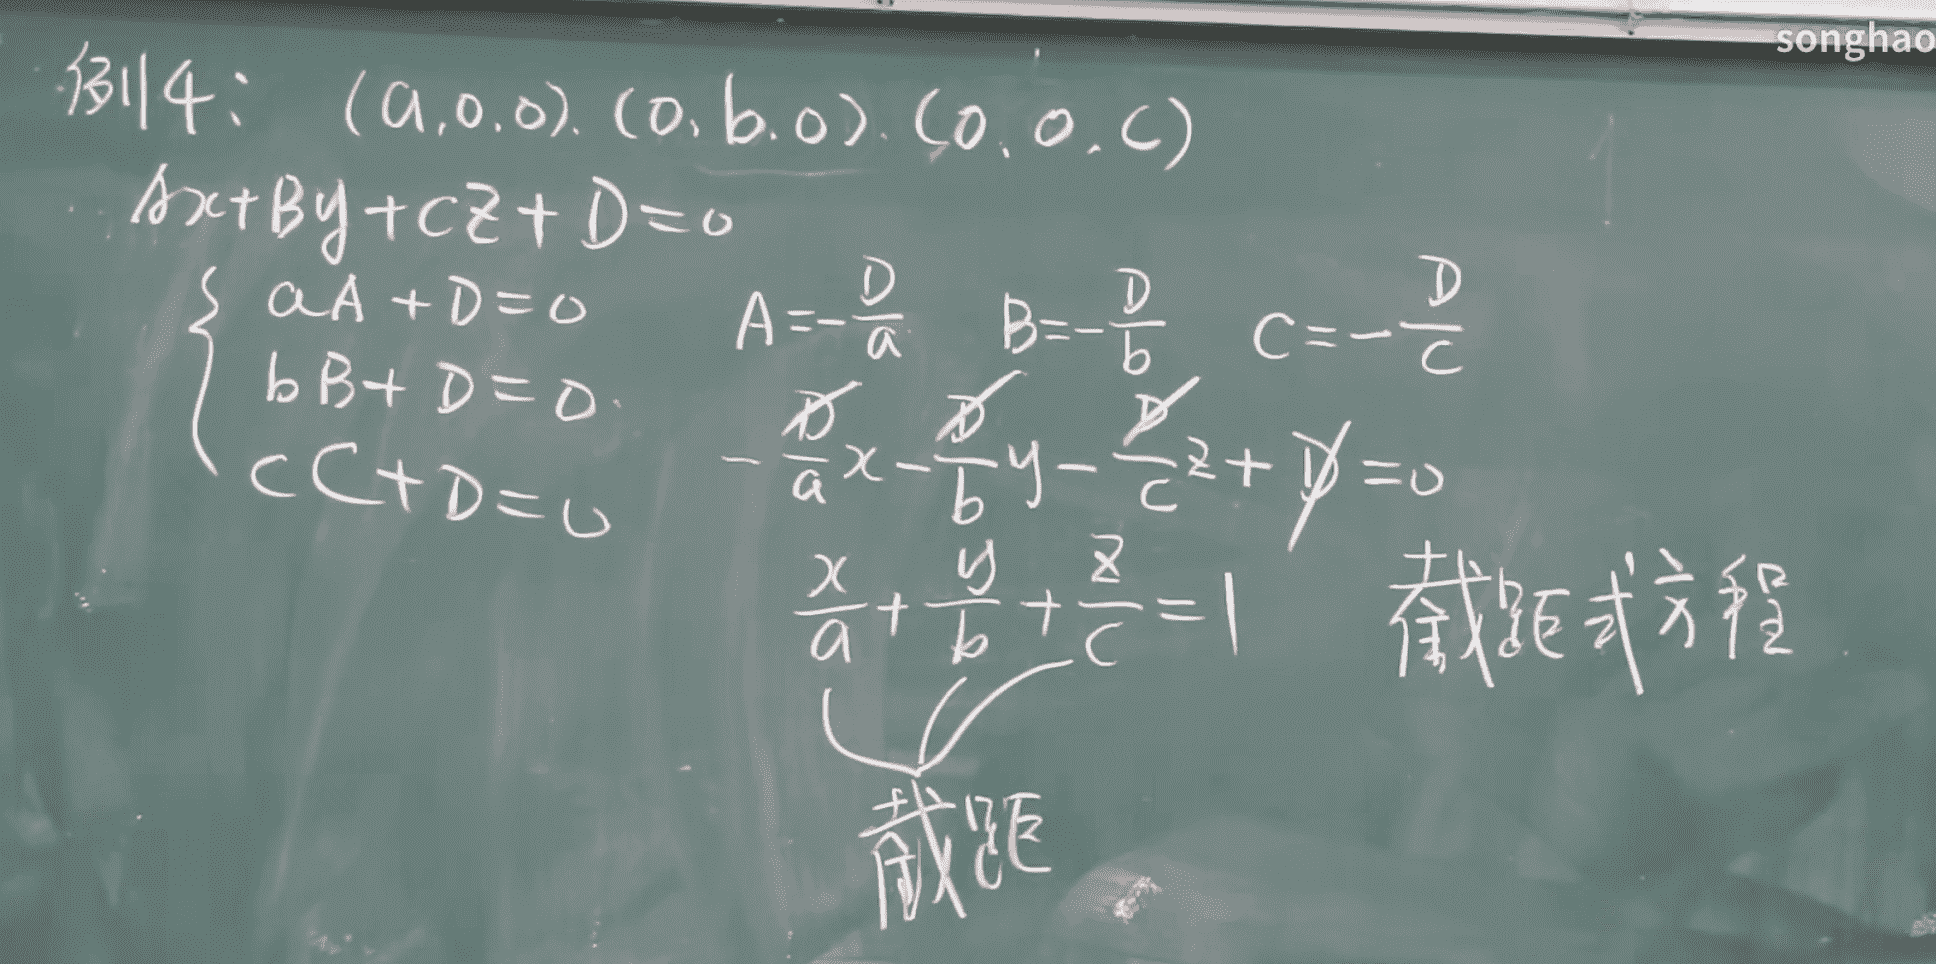 songhao
例4: (a,0,0). (0,b.0). (0,0,c)
Ax+By+Cz+D=0
{ aA+D=0
bB+D=0.
cC+D=0
A=-D/a B=-D/b C=-D/c
-D/a x-D/b y-D/c z+D=0
x/a+y/b+z/c=1 截距式方程
截距